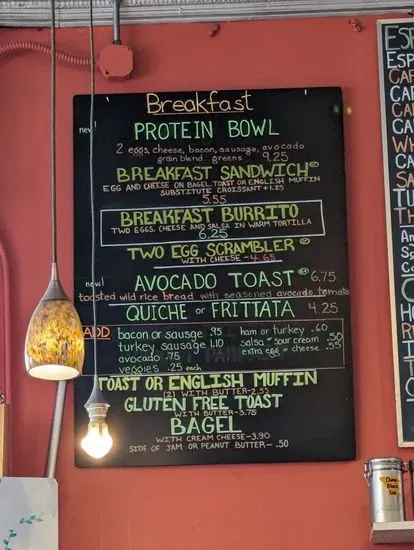 Breakfast
new!
PROTEIN BOWL
2 eggs, cheese, bacon, sausage, avocado
grain blend. greens 9.25
BREAKFAST SANDWICH
EGG AND CHEESE ON BAGEL, TOAST OR ENGLISH MUFFIN
SUBSTITUTE CROISSANT +1.25
5.55
BREAKFAST BURRITO
TWO EGGS, CHEESE AND SALSA IN WARM TORTILLA
6.25
TWO EGG SCRAMBLER
WITH CHEESE - 4.65
new!
AVOCADO TOAST 6.75
toasted wild rice bread with seasoned avocado, tomato
QUICHE or FRITTATA 4.25
ADD
bacon or sausge .95
turkey sausage 1.10
avocado .75
veggies .25 each
ham or turkey .60
salsa or sour cream .50
extra egg or cheese .55
TOAST OR ENGLISH MUFFIN
(2) WITH BUTTER-2.5
GLUTEN FREE TOAST
WITH BUTTER-3.75
BAGEL
WITH CREAM CHEESE-3.90
SIDE OF JAM OR PEANUT BUTTER- .50
ESP
ESP
CAP
CA
CA
CA
WH
CA
TU
TH